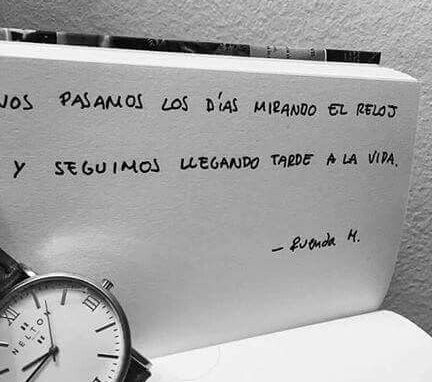 NOS PASAMOS LOS DÍAS MIRANDO EL RELOJ
Y SEGUIMOS LLEGANDO TARDE A LA VIDA.
M.
NELTON